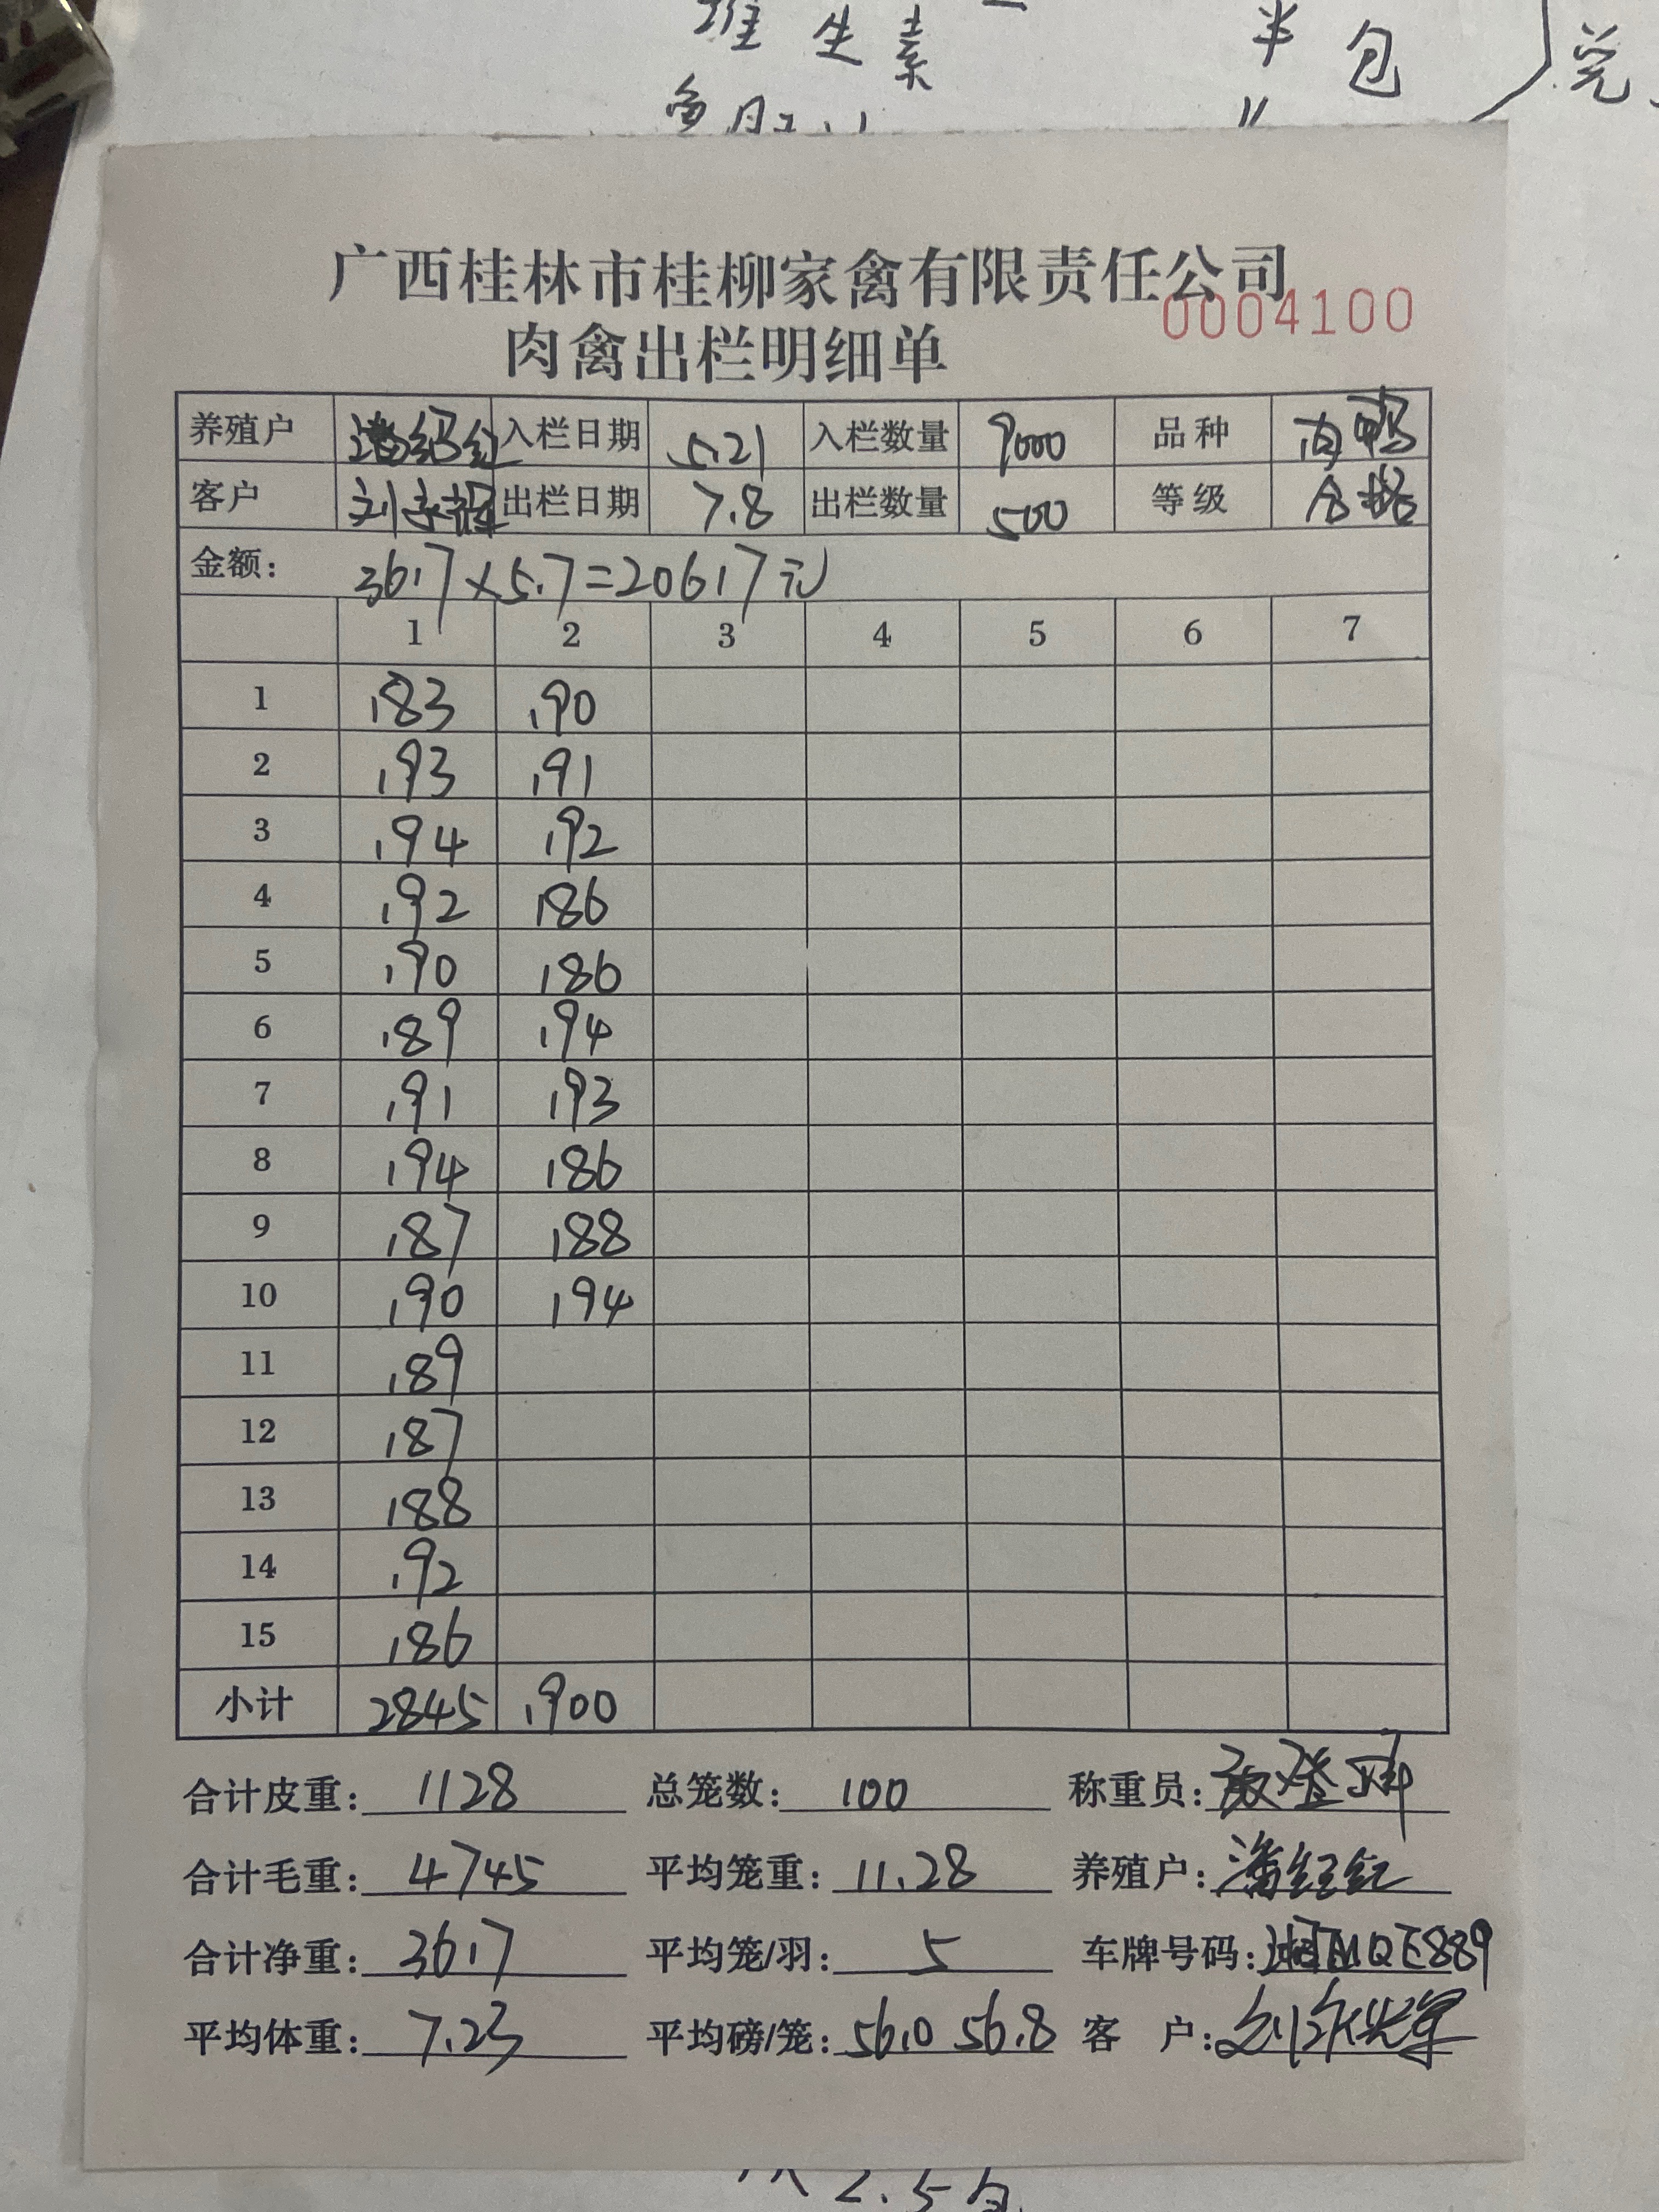 维生素 半包 兑
广西桂林市桂柳家禽有限责任公司
0004100
肉禽出栏明细单
养殖户 潘绍红 入栏日期 5.21 入栏数量 9000 品种 肉鸭
客户 出栏日期 7.8 出栏数量 500 等级 合格
金额: 3617×5.7=20617元
1 2 3 4 5 6 7
1 183 190
2 193 191
3 194 192
4 192 186
5 190 186
6 189 194
7 191 193
8 194 186
9 187 188
10 190 194
11 189
12 187
13 188
14 192
15 186
小计 2845 1900
合计皮重: 1128 总笼数: 100 称重员:
合计毛重: 4745 平均笼重: 11.28 养殖户:
合计净重: 3617 平均笼/羽: 5 车牌号码:
平均体重: 7.23 平均磅/笼: 56.0 56.8 客 户:
2.5包